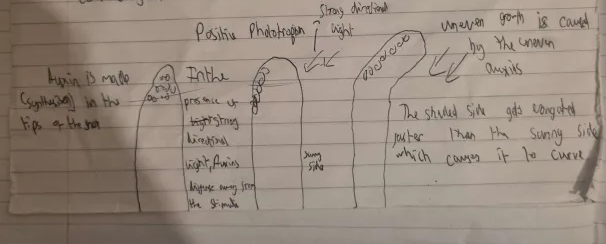 Strong directional
light
Positive Phototropism
Auxin is made
(synthesised) in the
tips of the shoot
In the
presence of
strong
directional
light, Auxins
diffuse away from
the stimulus
sunny
side
uneven growth is caused
by the uneven
auxins
The shaded side gets elongated
faster then the sunny side
which causes it to curve